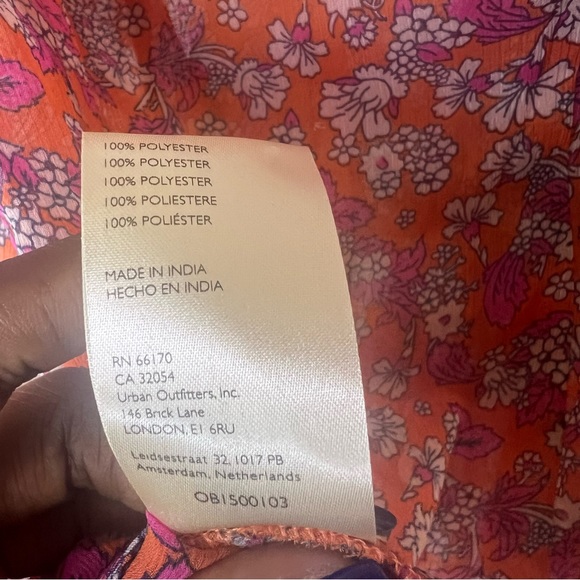 100% POLYESTER
100% POLYESTER
100% POLYESTER
100% POLIESTERE
100% POLIÉSTER
MADE IN INDIA
HECHO EN INDIA
RN 66170
CA 32054
Urban Outfitters, Inc.
146 Brick Lane
LONDON, E1 6RU
Leidsestraat 32, 1017 PB
Amsterdam, Netherlands
OB1500103